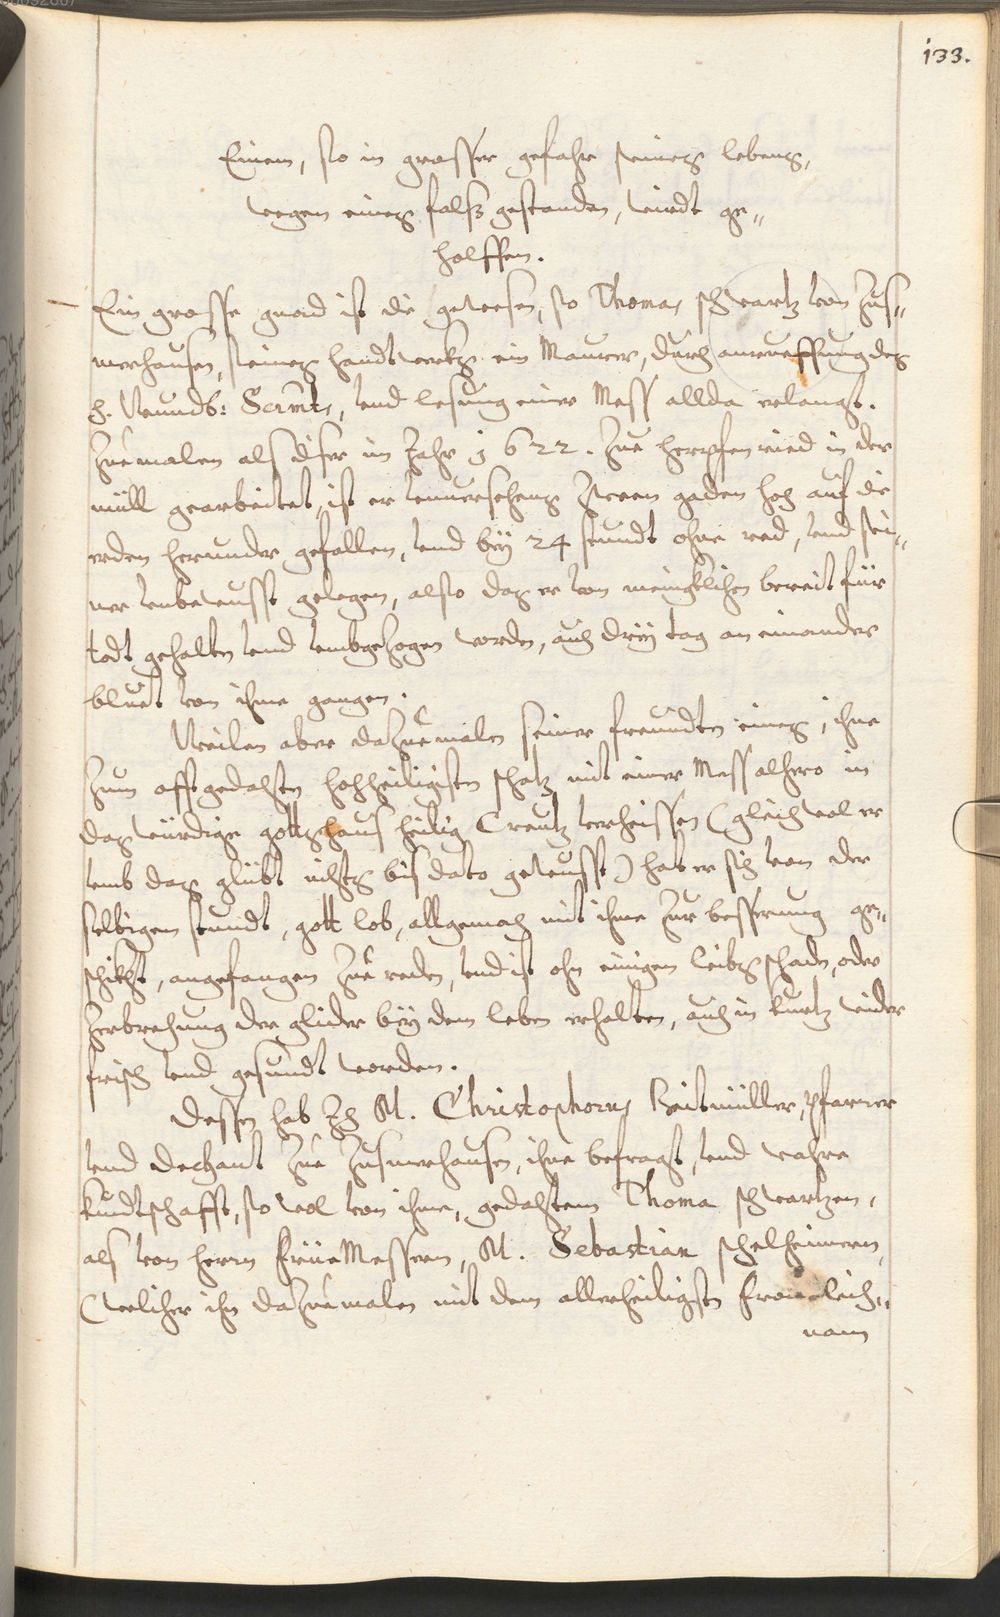 133.
Einem, so in grosser gefahr seines lebens,
wegen eines fals gestanden, wirdt ge„
holffen.
Ein grosse gnad ist die gewesen, so Thomas schwartz von Zus„
merhausen, seines handtwerks ein Maurer, durch anrueffung des
h. Wunds: Sacramts, vnd lesung einer Mess allda erlangt.
Zuemalen als diser im Jahr 1622. Zue herpfenried in der
müll gearbeitet, ist er vnuersehens Zween gaden hoch auf die
erden herunder gefallen, vnd bÿ 24 stundt ohne red, vnd sei„
ner vnbewusst gelegen, also das er von meingklichen bereit für
todt gehalten vnd vmbgezogen worden, auch dreÿ tag an einander
bluet von ihme gangen.
Weilen aber dazuemalen seiner freundten einer, ihne
Zum offtgedachten hochheiligisten schatz mit einer Mess alhero in
das würdige gottshaus heilig Creutz verheissen (gleichwol er
vmb das glübt nichts bis dato gewusst) hat er sich von der
selbigen stundt, gott lob, allgemach mit ihme Zur besserung ge„
schikht, angefangen Zue reden, vnd ist ohn einigen leibsschaden, oder
Zerbrechung der glider bÿ dem leben erhalten, auch in kurtz wider
frisch vnd gesundt worden.
Dessen hab Ich M. Christophorus Reitmüller, pfarrer
vnd dechant Zue Zusmerhausen, ihne befragt, vnd wahre
kundtschafft, so wol von ihme, gedachtem Thoma schwartzen,
als von herrn früeMessern, M. Sebastian schelheimern,
(welicher ihn dazuemalen mit dem allerheiligsten fronleich„
nam